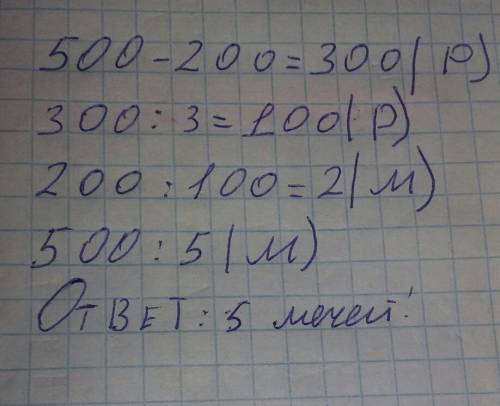 500-200=300(р)
300:3=100(р)
200:100=2(м)
500:5(м)
Ответ: 5 мечей!